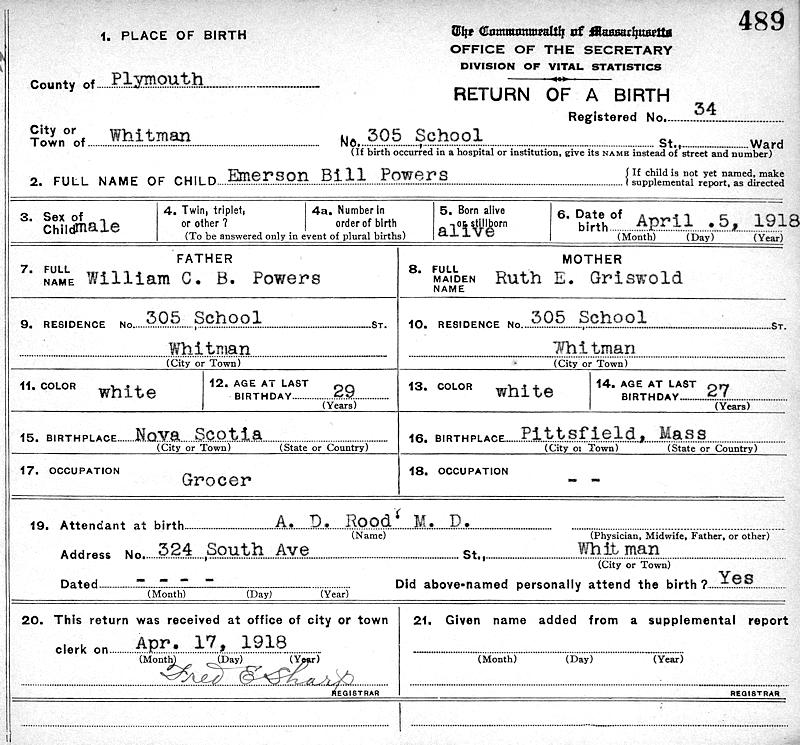 489
1. PLACE OF BIRTH
The Commonwealth of Massachusetts
OFFICE OF THE SECRETARY
DIVISION OF VITAL STATISTICS
RETURN OF A BIRTH
County of Plymouth
Registered No. 34
City or Town of Whitman
No. 305 School St., Ward
(If birth occurred in a hospital or institution, give its NAME instead of street and number)
2. FULL NAME OF CHILD Emerson Bill Powers
{If child is not yet named, make supplemental report, as directed
3. Sex of Child male
4. Twin, triplet, or other?
4a. Number in order of birth
(To be answered only in event of plural births)
5. Born alive or stillborn alive
6. Date of birth April .5, 1918
(Month) (Day) (Year)
FATHER
7. FULL NAME William C. B. Powers
MOTHER
8. FULL MAIDEN NAME Ruth E. Griswold
9. RESIDENCE No. 305 School ST.
Whitman
(City or Town)
10. RESIDENCE No. 305 School ST.
Whitman
(City or Town)
11. COLOR white
12. AGE AT LAST BIRTHDAY 29
(Years)
13. COLOR white
14. AGE AT LAST BIRTHDAY 27
(Years)
15. BIRTHPLACE Nova Scotia
(City or Town) (State or Country)
16. BIRTHPLACE Pittsfield, Mass
(City or Town) (State or Country)
17. OCCUPATION
Grocer
18. OCCUPATION
- -
19. Attendant at birth A. D. Rood' M. D.
(Name) (Physician, Midwife, Father, or other)
Address No. 324 South Ave St., Whitman
(City or Town)
Dated - - - -
(Month) (Day) (Year)
Did above-named personally attend the birth? Yes
20. This return was received at office of city or town
clerk on Apr. 17, 1918
(Month) (Day) (Year)
Fred E Sharp
REGISTRAR
21. Given name added from a supplemental report
(Month) (Day) (Year)
REGISTRAR